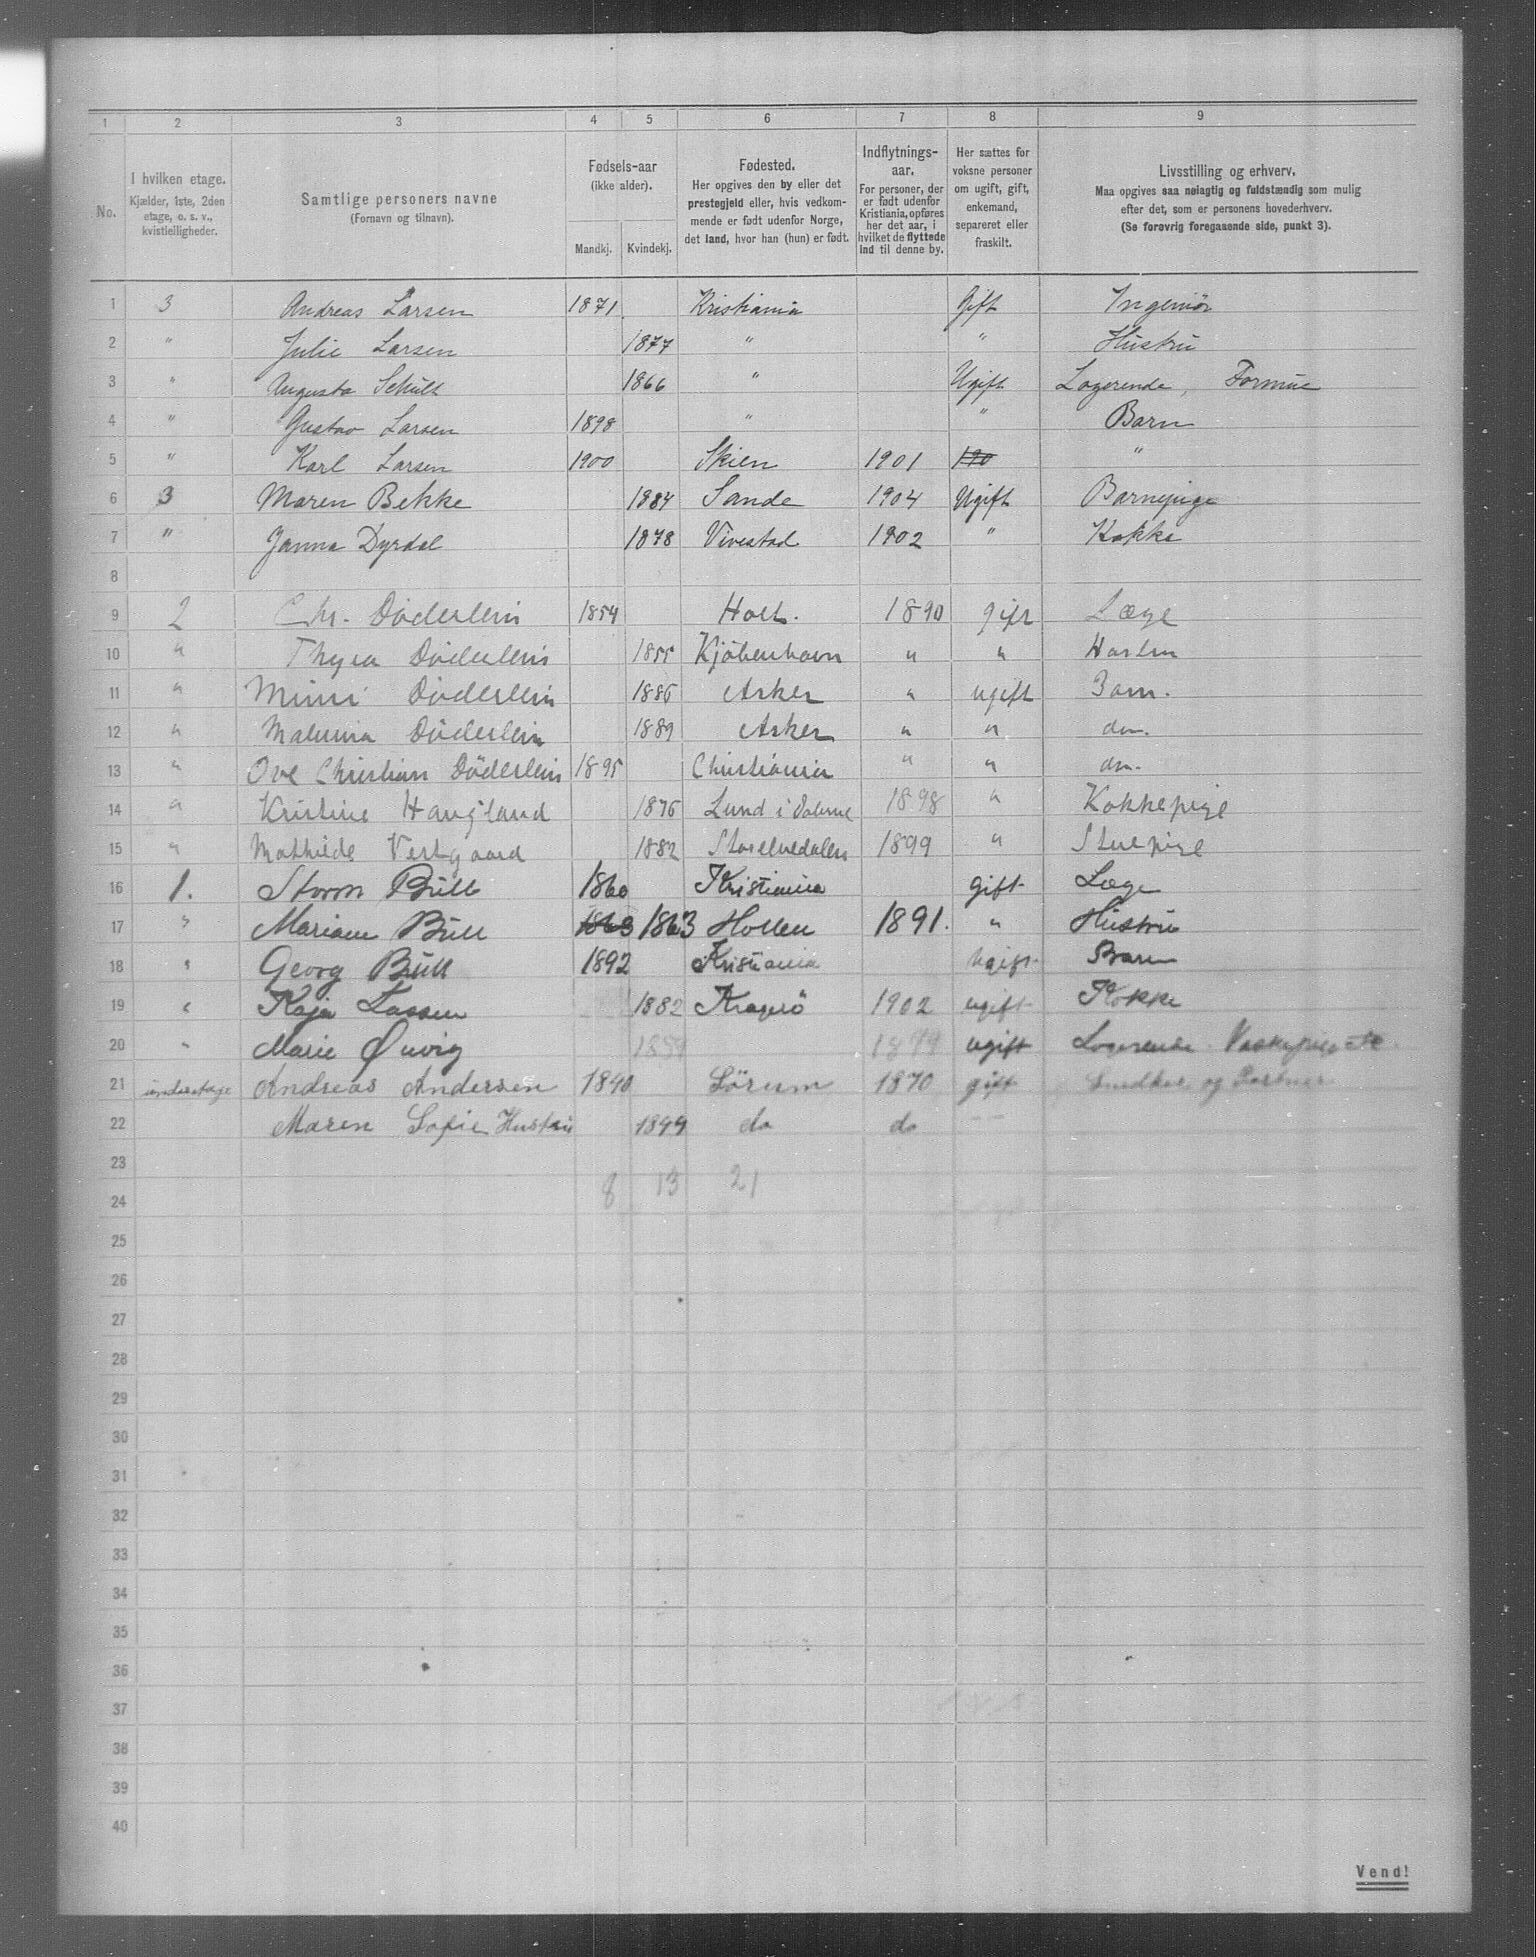 1 2 3 4 5 6 7 8 9
No.
I hvilken etage.
Kjælder, 1ste, 2den
etage, o. s. v.,
kvistleiligheder.
Samtlige personers navne
(Fornavn og tilnavn).
Fødsels-aar
(ikke alder).
Mandkj. Kvindekj.
Fødested.
Her opgives den by eller det
prestegjeld eller, hvis vedkom-
mende er født udenfor Norge,
det land, hvor han (hun) er født.
Indflytnings-
aar.
For personer, der
er født udenfor
Kristiania, opføres
her det aar, i
hvilket de flyttede
ind til denne by.
Her sættes for
voksne personer
om ugift, gift,
enkemand,
separeret eller
fraskilt.
Livsstilling og erhverv.
Maa opgives saa nøiagtig og fuldstændig som mulig
efter det, som er personens hovederhverv.
(Se forøvrig foregaaende side, punkt 3).
1 3 Andreas Larsen 1871. Kristiania Gift Ingeniør
2 " Julie Larsen 1877 " " Hustru
3 " Augusta Schult 1866 " Ugift Logerende, Formue
4 " Gustav Larsen 1898 " " Barn
5 " Karl Larsen 1900 Skien 1901 190 "
6 3 Maren Bekke 1884 Sande 1904 Ugift Barnepige
7 " Janna Dyrdal 1878 Vivestad 1902 " Kokke
8
9 2 Chr. Döderlein 1854 Holt. 1890 gift Læge
10 " Thyra Döderlein 1855 Kjöbenhavn " " Hustru
11 " Mimi Döderlein 1886 Asker " ugift Barn.
12 " Malvina Döderlein 1889 Asker " " do.
13 " Ove Christian Döderlein 1895 Christiania " " do.
14 " Kristine Haugland 1876 Lund i Dalerne 1898 " Kokkepige
15 " Mathilde Vestgaard 1882 Storelvedalen 1899 " Stuepige
16 1. Storm Bull 1860 Kristiania gift Læge
17 " Mariane Bull 1863 1863 Hollen 1891. " Hustru
18 " Georg Bull 1892 Kristiania ugift Barn
19 " Kaja Lassen 1882 Kragerö 1902 ugift Kokke
20 " Marie Qvvig 1859 1879 ugift Logerende
21 underetage Andreas Andersen 1840 Sörum 1870 gift Snedker og Gartner
22 Maren Sofie Hustru 1849 do do
23
8 13 21
24
25
26
27
28
29
30
31
32
33
34
35
36
37
38
39
40
Vend!